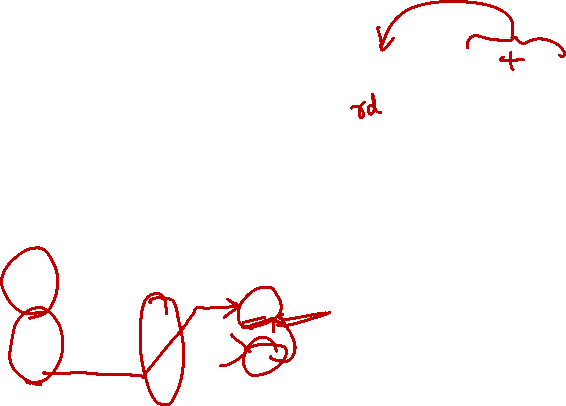 +
rd